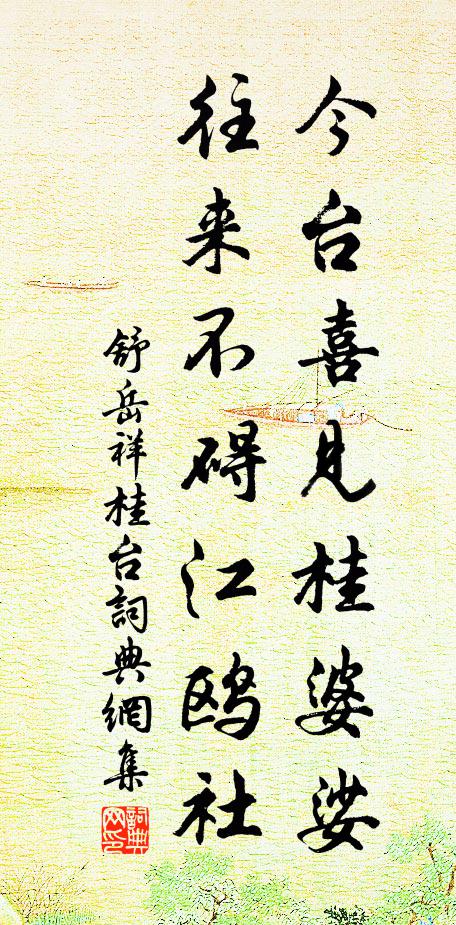 今台喜見桂婆娑
往来不碍江鸥社
舒岳祥桂台詞典網集
詞典网印